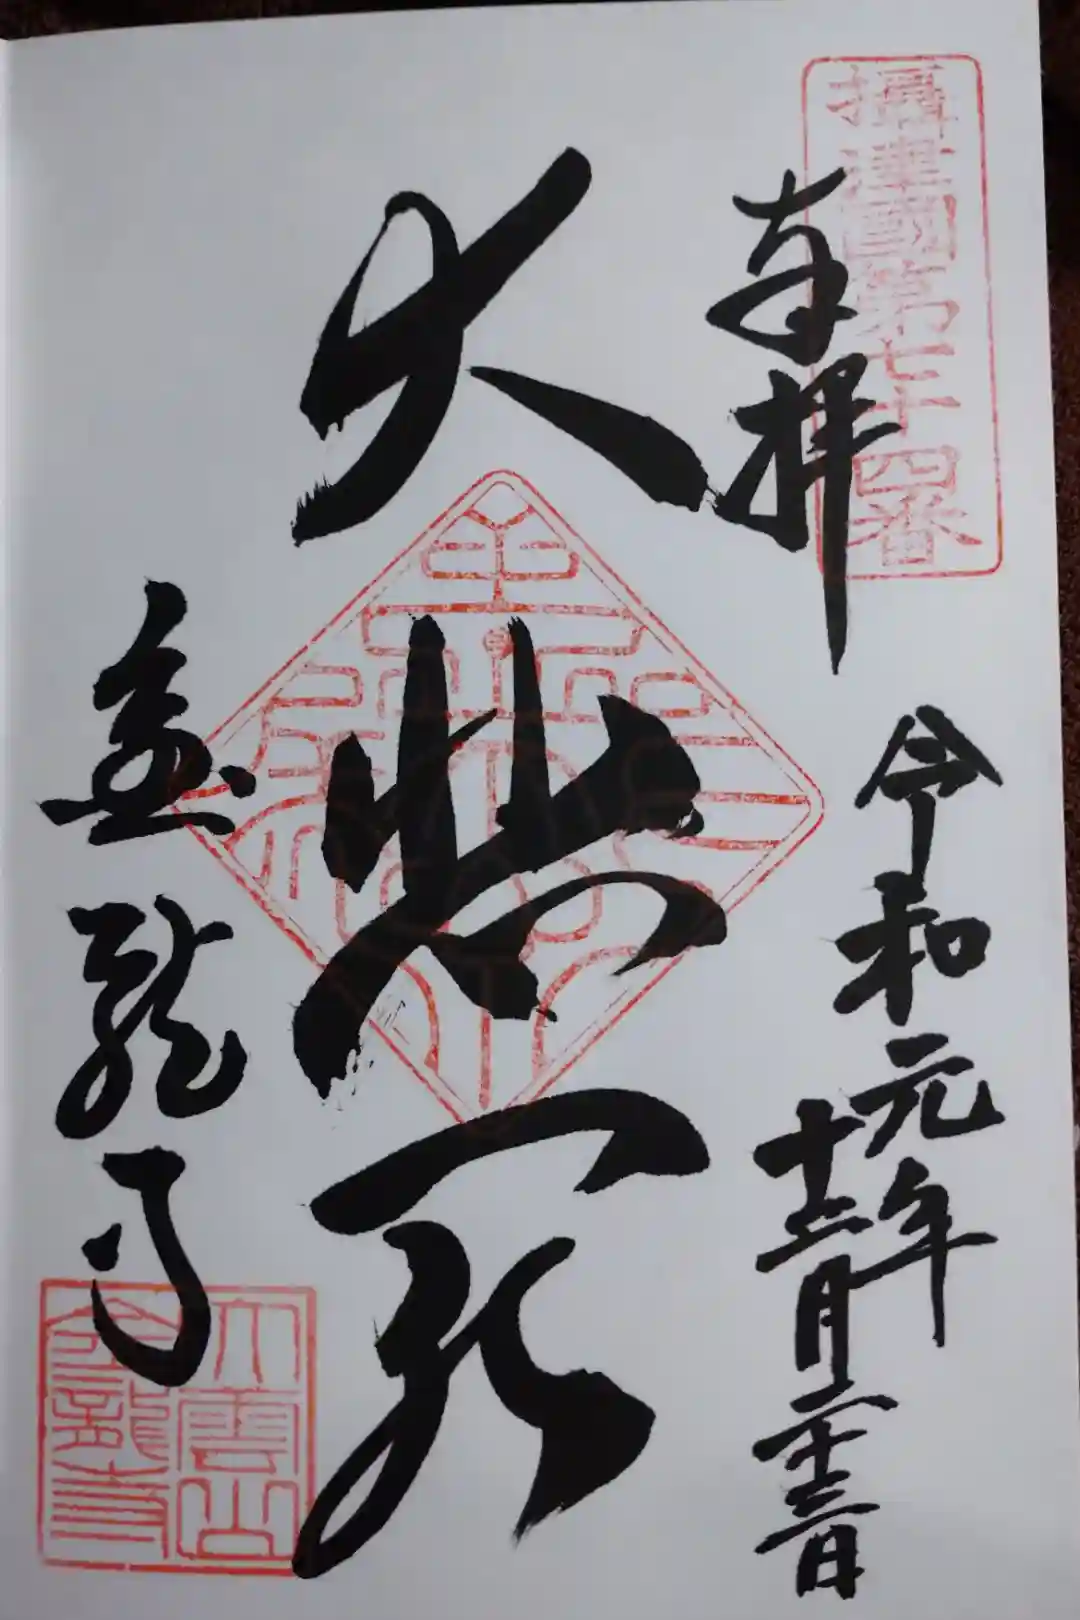 攝津國第七十四番
奉拝
令和元年
十二月二十三日
大悲殿
金龍寺
大雲山
金龍寺